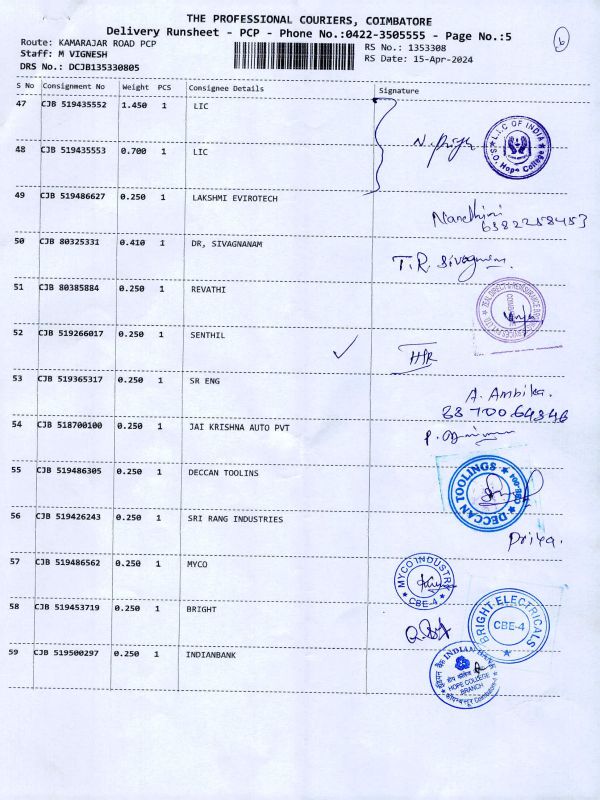 THE PROFESSIONAL COURIERS, COIMBATORE
Delivery Runsheet - PCP - Phone No.:0422-3505555 - Page No.:5
6
Route: KAMARAJAR ROAD PCP
RS No.: 1353308
Staff: M VIGNESH
RS Date: 15-Apr-2024
DRS No.: DCJB135330805
S No Consignment No Weight PCS Consignee Details Signature
47 CJB 519435552 1.450 1 LIC
L.I.C OF INDIA
S.O. Hope College
48 CJB 519435553 0.700 1 LIC
49 CJB 519486627 0.250 1 LAKSHMI EVIROTECH
Nandhini
6382258453
50 CJB 80325331 0.410 1 DR, SIVAGNANAM
T.R. Sivagnam.
51 CJB 80385884 0.250 1 REVATHI
52 CJB 519266017 0.250 1 SENTHIL
53 CJB 519365317 0.250 1 SR ENG
A. Ambika.
54 CJB 518700100 0.250 1 JAI KRISHNA AUTO PVT
55 CJB 519486305 0.250 1 DECCAN TOOLINS
DECCAN TOOLINGS
CBE-004
56 CJB 519426243 0.250 1 SRI RANG INDUSTRIES
Priya.
57 CJB 519486562 0.250 1 MYCO
MYCO INDUSTRY
CBE-4
58 CJB 519453719 0.250 1 BRIGHT
BRIGHT ELECTRICALS
CBE-4
59 CJB 519500297 0.250 1 INDIANBANK
INDIAN BANK
HOPE COLLEGE
BRANCH